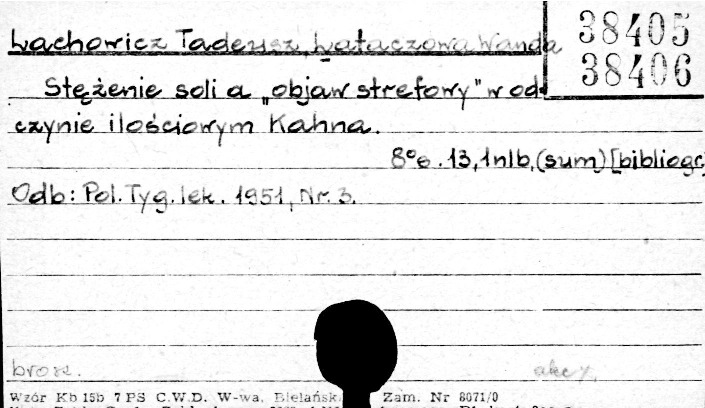 38405
38406
Lachowicz Tadeusz, Łataczowa Wanda
Stężenie soli a „objaw strefowy" w od-
czynie ilościowym Kahna.
8° s. 13, 1 nlb, (sum) [bibliogr
Odb: Pol. Tyg. lek. 1951, Nr. 3.
brosz.
Wzór Kb 15b 7 PS C.W.D. W-wa, Bielańsk. Zam. Nr 8071/0